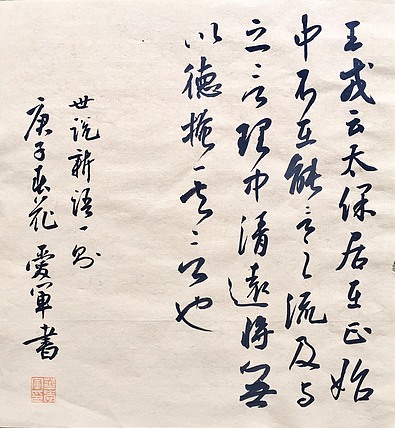 王戎云太保居在正始
中不在能言之流及与
之言理中清遠將無
以德掩其言也
世说新语一则
庚子春花 愛軍書